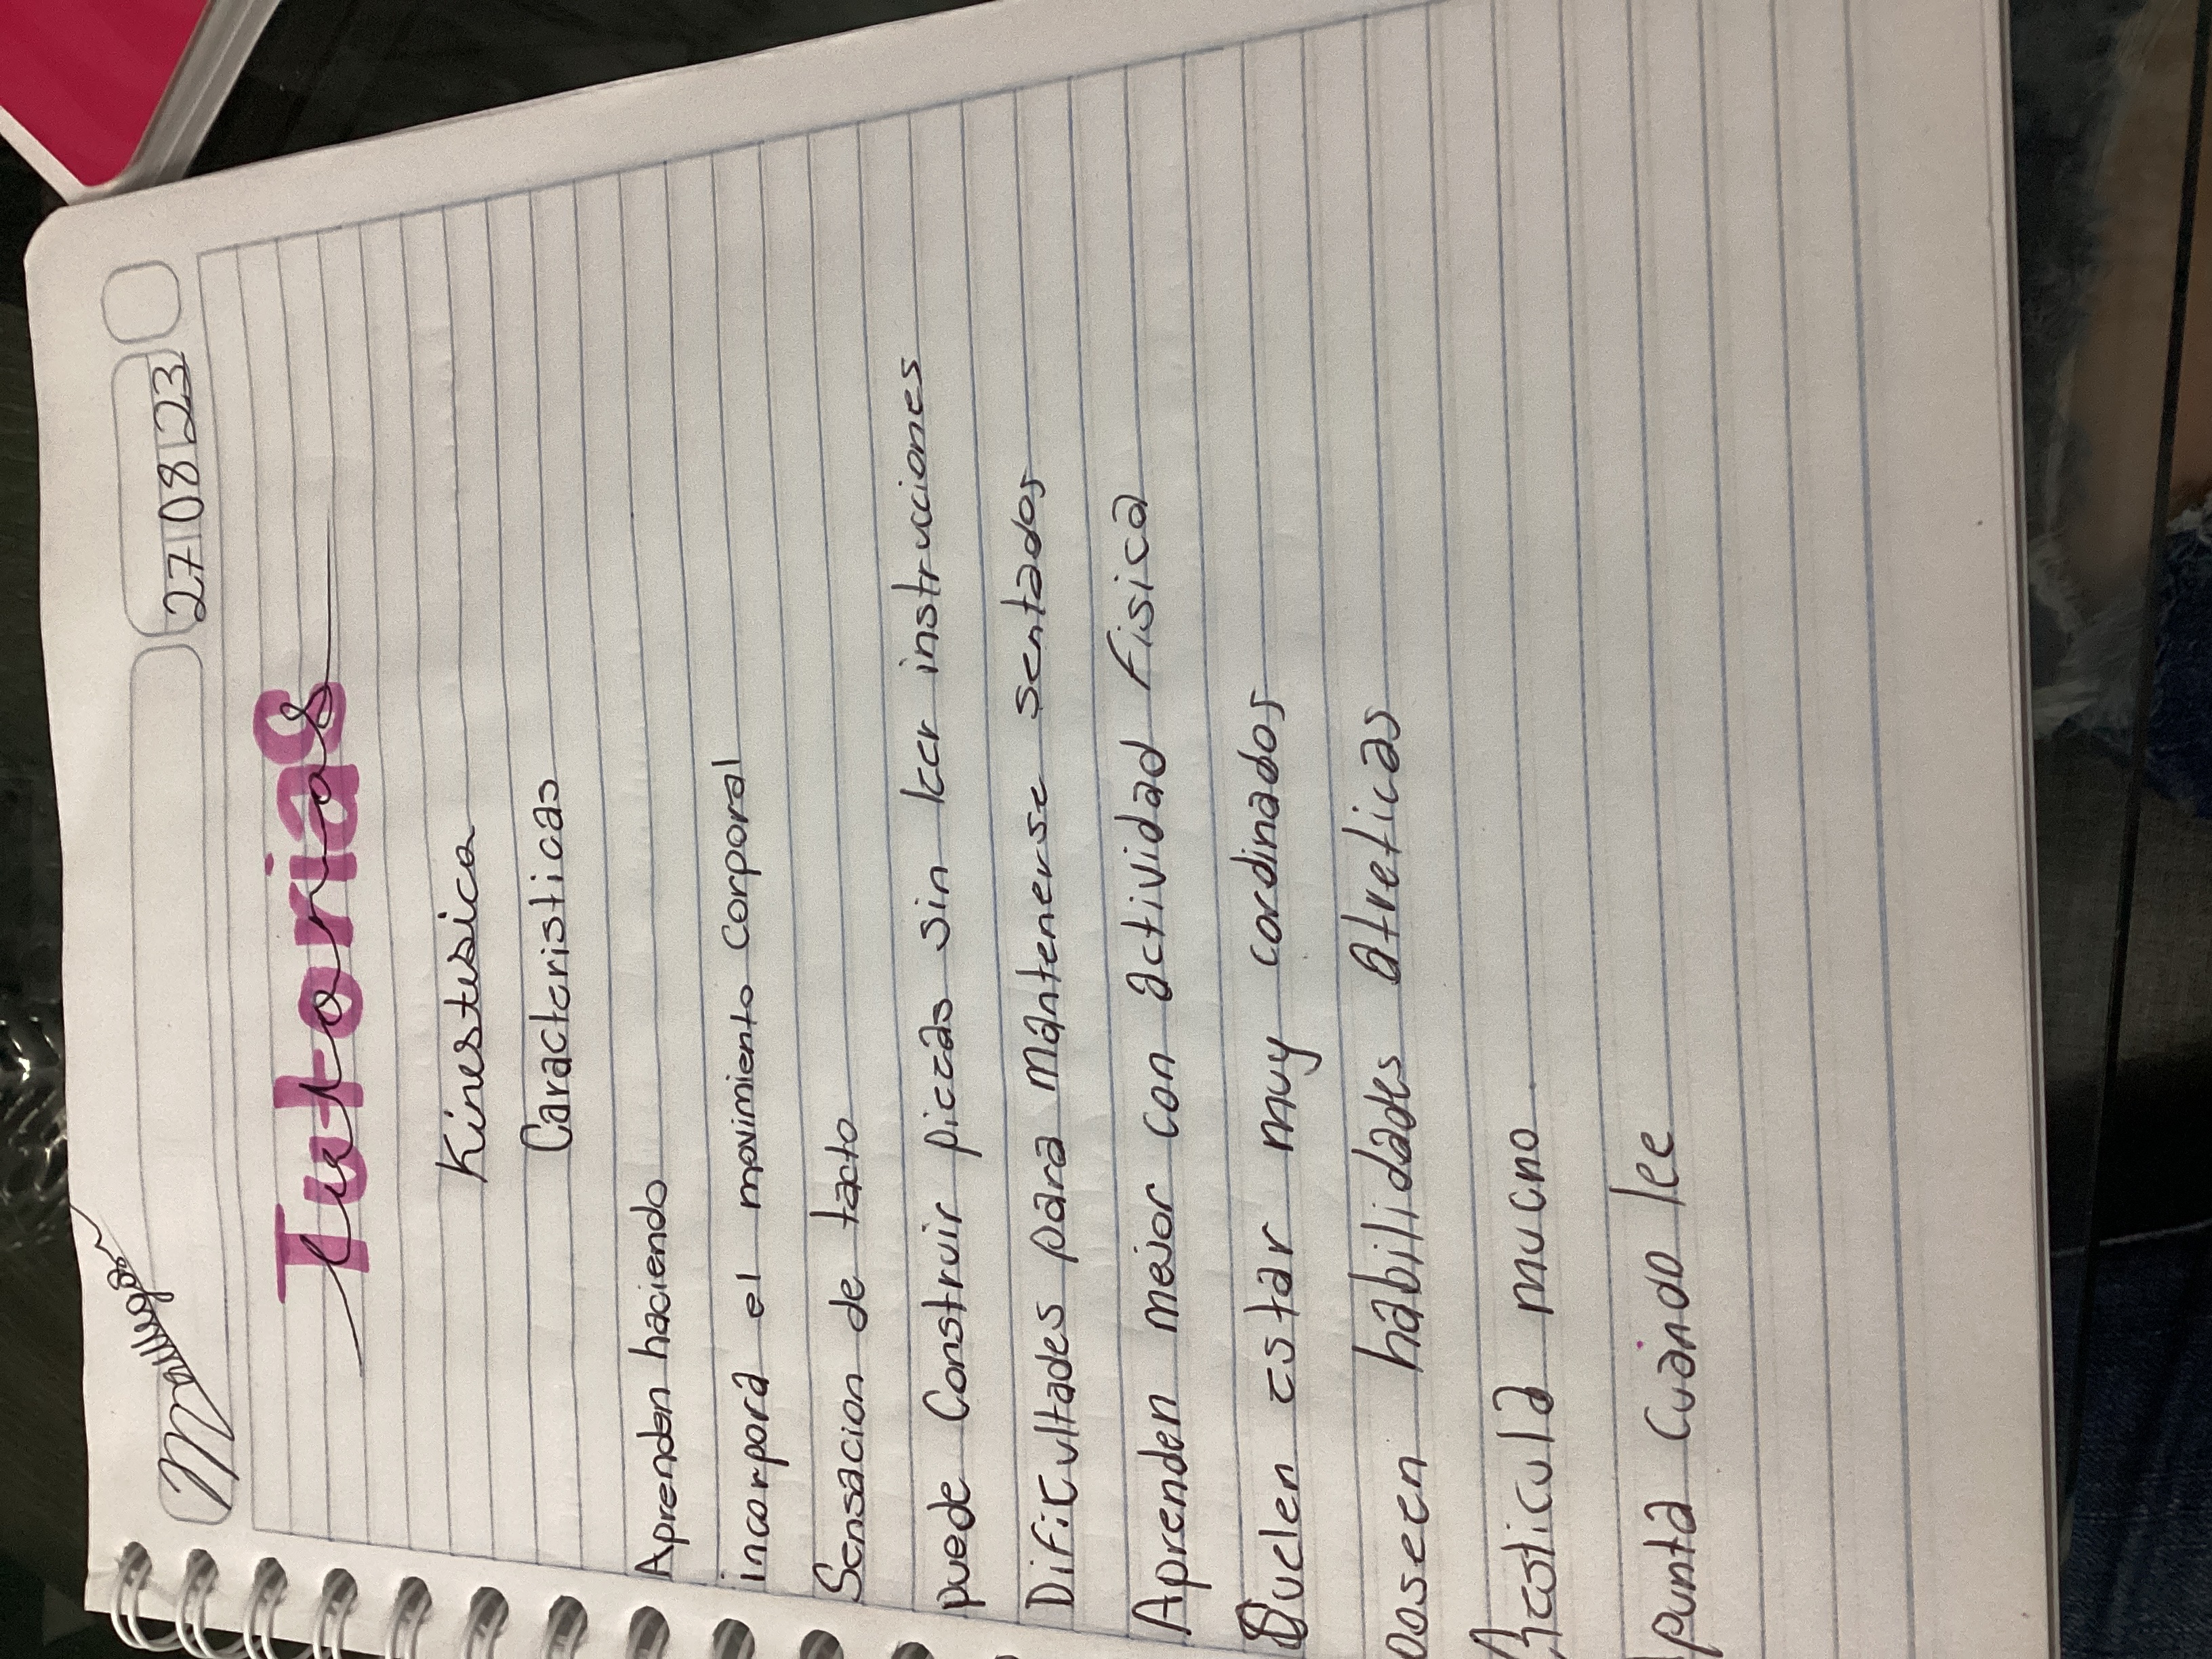 27 08 23
Tutorias
Kinestesica
Caracteristicas
Aprenden haciendo
incorpora el movimiento Corporal
Sensacion de tacto
puede Construir piezas sin leer instrucciones
Dificultades para mantenerse sentados
Aprenden mejor con actividad Fisica
Suelen estar muy cordinados
poseen habilidades atreticas
Gesticula mucho
Apunta cuando lee